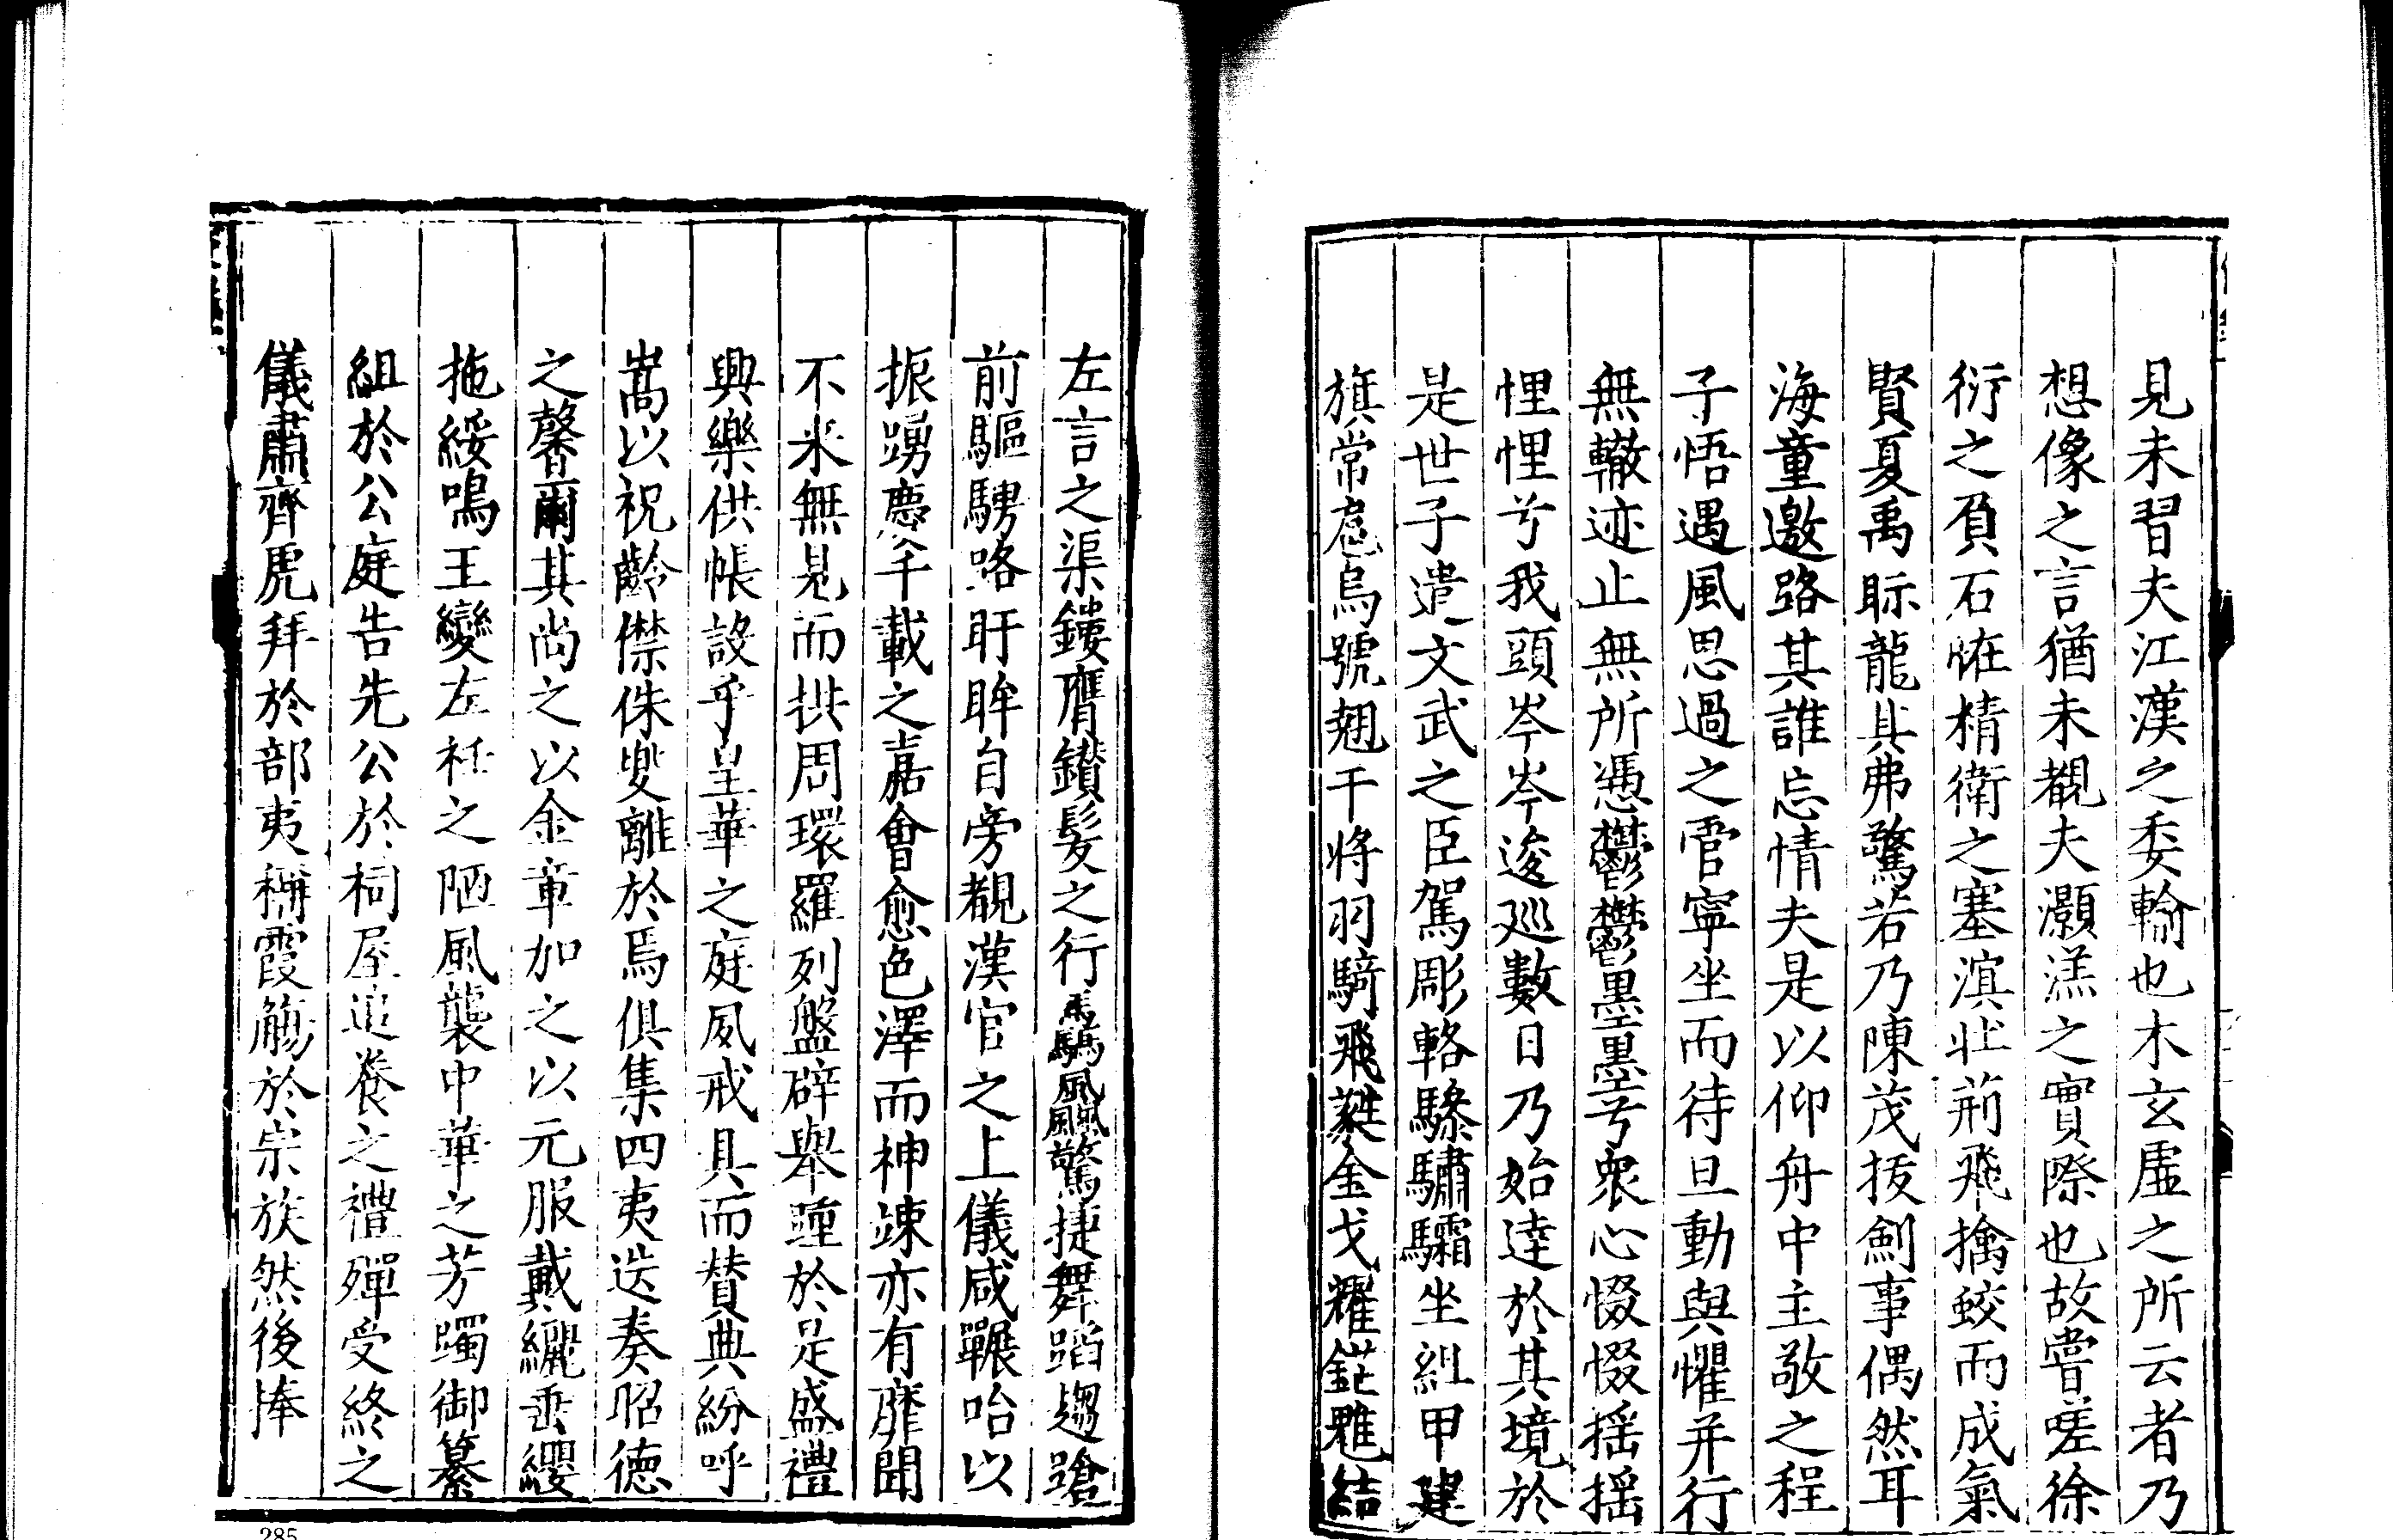 見未習夫江漢之委輸也木玄虛之所云者乃
想像之言猶未覩夫灝溔之實際也故嘗嗟徐
衍之負石恠精衛之塞滇壯荊飛擒蛟而成氣
賢夏禹眎龍其弗驚若乃陳茂拔劍事偶然耳
海童邀路其誰忘情夫是以仰舟中主敬之程
子悟遇風思過之管寧坐而待旦動與懼并行
無轍迹止無所憑鬱鬱黑黑兮衆心惙惙搖搖
悝悝兮我頭岑岑逡巡數日乃始達於其境於
是世子遣文武之臣駕彫輅驂驌驦坐組甲建
旗常扈烏號翹干將羽騎飛金戈耀鋩魋結
左言之渠鏤膺鑽髮之行馬驕風驚捷舞蹈趨蹌
前驅騁路盱眸自旁覩漢官之上儀咸囅咍以
振踴慶千載之嘉會愈色澤而神竦亦有靡聞
不來無見而拱周環羅列盤辟舉踵於是盛禮
興樂供帳設乎皇華之庭夙戒具而贊典紛呼
嵩以祝齡僸侏兜離於焉俱集四夷迭奏昭德
之馨爾其尚之以金章加之以元服戴纚垂纓
拖綬鳴玉變左衽之陋風襲中華之芳躅御纂
組於公庭告先公於祠屋追養之禮殫受終之
儀肅齊虎拜於部夷稱霞觴於宗族然後捧
285